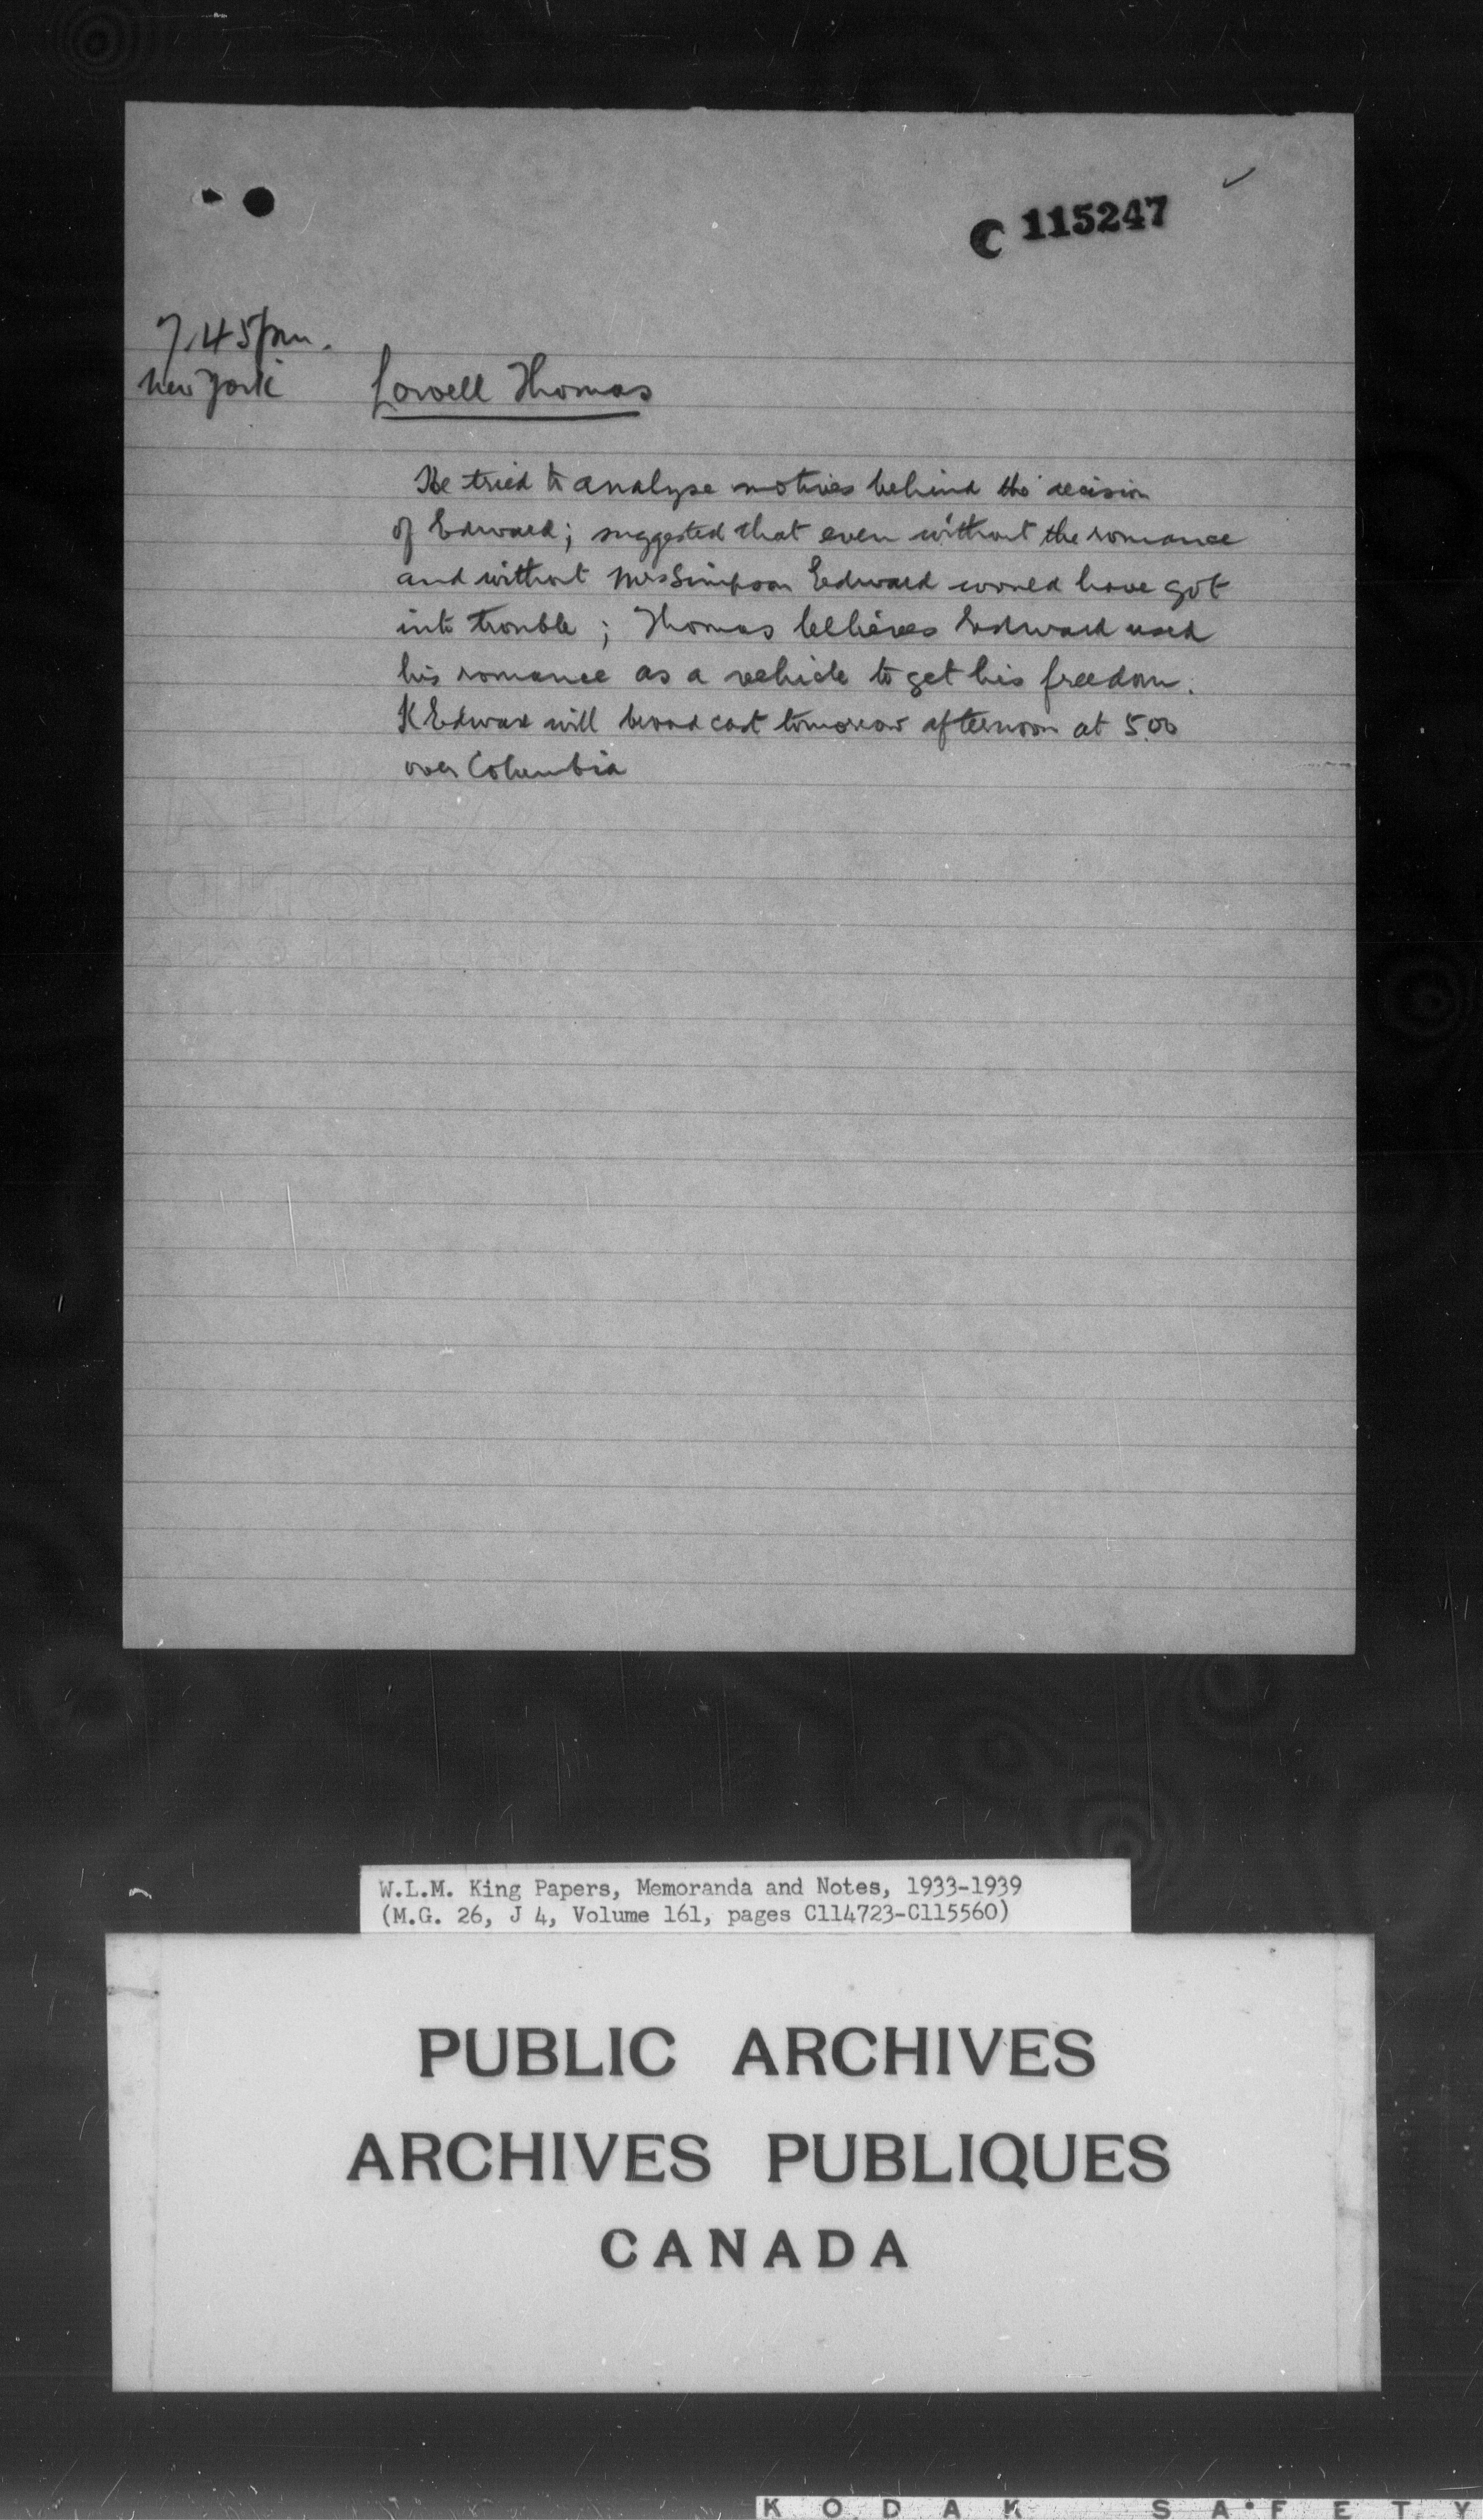 C 115247
7.45 pm.
New York
Lowell Thomas
He tried to analyse motives behind the decision
of Edward; suggested that even without the romance
and without Mrs Simpson Edward would have got
into trouble; Thomas believes Edward used
his romance as a vehicle to get his freedom.
K Edward will broadcast tomorrow afternoon at 5.00
over Columbia
W.L.M. King Papers, Memoranda and Notes, 1933-1939
(M.G. 26, J 4, Volume 161, pages C114723-C115560)
PUBLIC ARCHIVES
ARCHIVES PUBLIQUES
CANADA
KODAK SAFETY